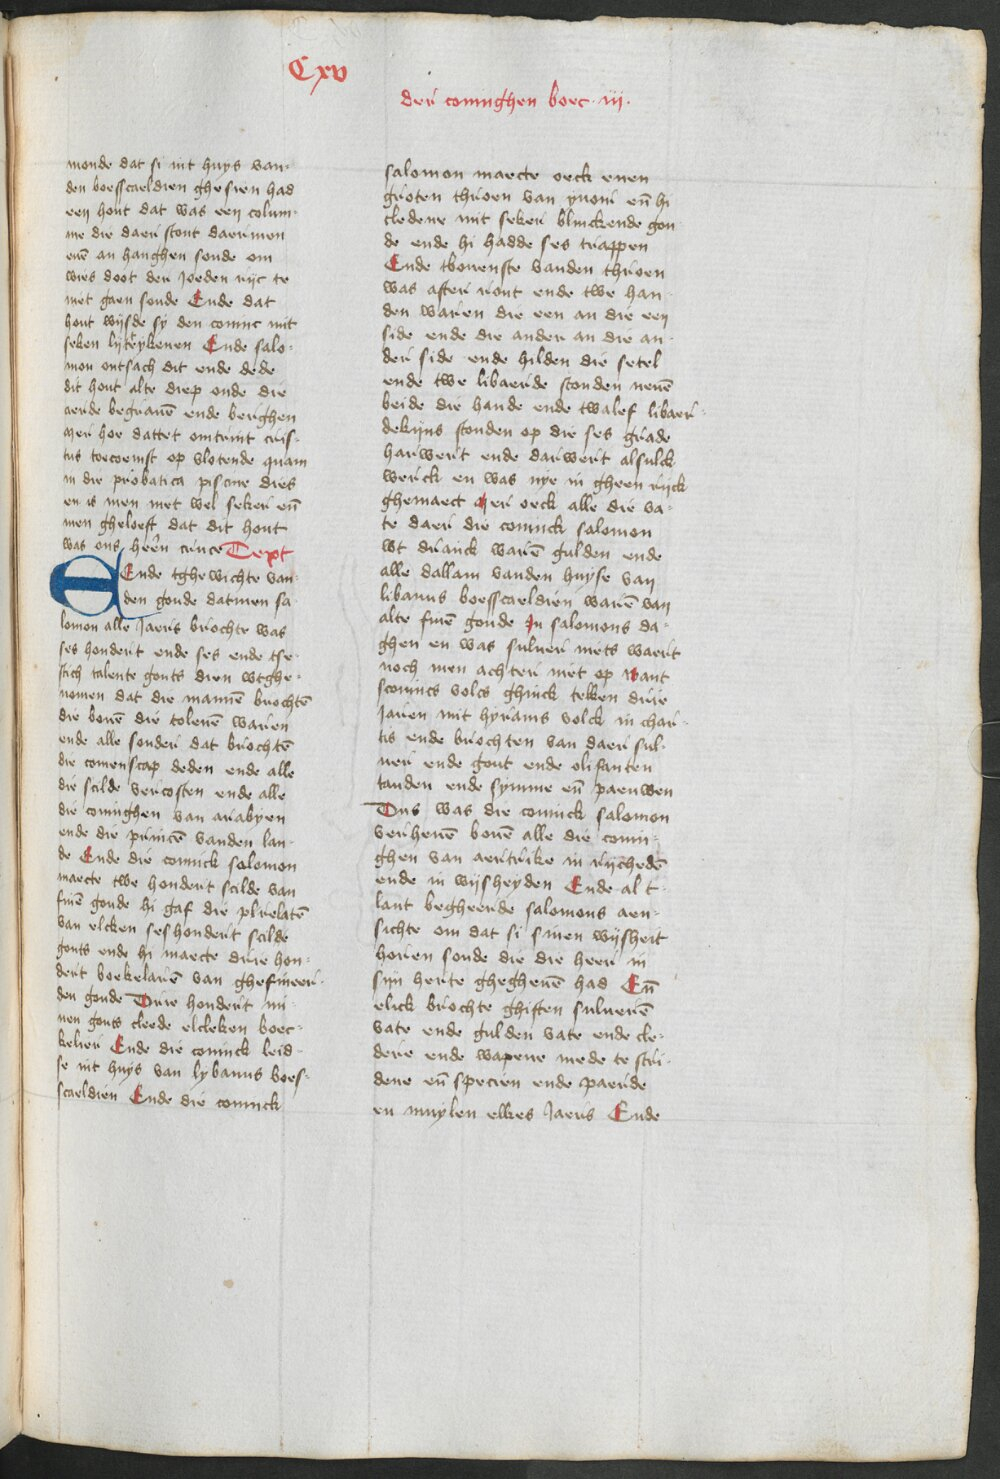 Cxv
der coninghen boec · iij ·
monde dat si int huys van-
den boesscaeldien ghesien had
een hout dat was een colum-
me die daer stont daermen
enē an hanghen soude om
wies doot der Joeden rijc te
niet gaen soude Ende dat
hout wijsde sy den coninc mit
seken lijcteykenen Ende salo-
mon ontsach dit ende dede
dit hout alte diep onde die
aerde begrauē ende berghen
Mer hoe dattet omtrint cris-
tus toecoemst op vlotende quam
in die probatica piscine dies
en is men niet wel seker en̄
men gheloeft dat dit hout
was ons heren cruce Text
Ende tghewichte van-
den goude datmen sa
lomon alle Jaers brochte was
ses hondert ende ses ende tse-
stich talente gouts dien wtghe-
nomen dat die mannē brochtē
die bouē die tolenē waren
ende alle sonder dat brochtē
die comenscap deden ende alle
die scilde vercosten ende alle
die coninghen van arabyen
ende die princē vanden lan-
de Ende die coninck salomon
maecte twe hondert scilde van
finē goude hi gaf die plrelatē
van elcken seshondert scilde
gouts ende hi maecte drie hon-
dert boekelarē van ghefineer-
den goude Drie hondert mi-
nen gouts cleede elcleken boec-
kelier Ende die coninck leid-
se int huys van lybanus boes-
scaeldien Ende die coninck
salomon maecte oeck enen
groten throen van yuori en̄ hi
cledene mit seker blinckende gou
de ende hi hadde ses trappen
Ende tbouenste vanden throen
was after ront ende twe han-
den waren die een an die een
side ende die ander an die an-
der side ende hilden die setel
ende twe libaerde stonden neuē
beide die hande ende twalef libaer-
dekijns stonden op die ses grade
harwert ende darwert alsulck
werck en was nye in gheen rijck
ghemaect Mer oeck alle die va-
te daer die coninck salomon
wt dranck warē gulden ende
alle dallam vanden huyse van
libanus boesscaeldien warē van
alte finē goude In salomons da-
ghen en was suluer niets waert
noch men achter niet op want
sconincs volcs ghinck telken drie
Jaren mit hyrams volck in char-
tis ende brochten van daer sul-
uer ende gout ende olifanten
tanden ende symme en̄ paeuwen
Dus was die coninck salomon
verheuē bouē alle die conin-
ghen van aertrike in rijchedē
ende in wijsheyden Ende al t-
lant begheerde salomons aen-
sichte om dat si sinen wijsheit
horen soude die die heer in
sijn herte ghegheuē had En̄
elick brochte ghiften suluerē
vate ende gulden vate ende cle-
dere ende wapene mede te stri-
dene en̄ specien ende paerde
en muylen elkes Jaers Ende